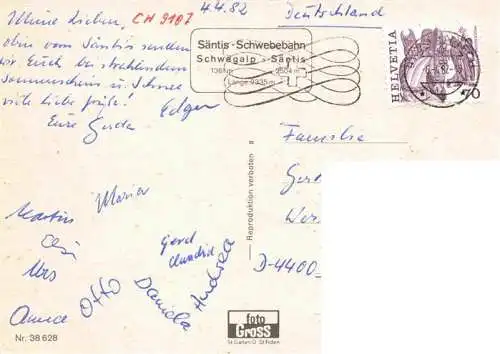 Meine Lieben, CH 9107 4.4.82
oben vom Säntis senden
wir Euch bei strahlendem
Sonnenschein u. Schnee
viele liebe Grüße!
Eure Gerda Edgar
Martin Maria
Urs
Otto
Daniela
Andrea
Nr. 38 628
Deutschland
Säntis-Schwebebahn
Schwägalp - Säntis
HELVETIA
70
Reproduktion verboten
Familie
D-4400
foto
Gross
St. Gallen O St. Fiden